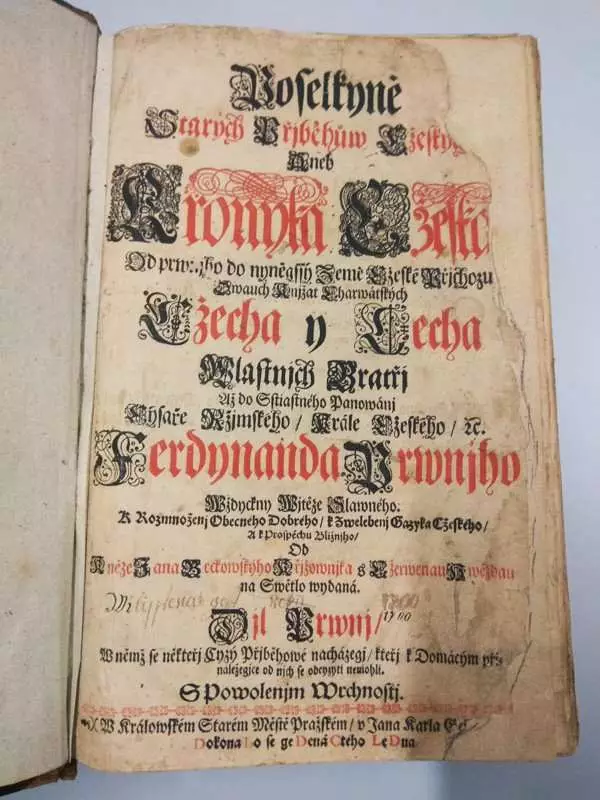 Poselkyně
Starých Přjběhůw Cžeský
Aneb
Kronyka Cžeská
Od prwnjho do nyněgssý Země Cžeské Přjchozu
Dwauch Knjžat Charwátských
Cžecha y Lecha
Wlastnjch Bratřj
Až do Sstiastného Panowánj
Cýsaře Ržjmského / Krále Cžeského / ꝛc.
Ferdynanda Prwnjho
Wždyckny Wjtěze Slawného.
K Rozmnoženj Obecného Dobrého / k Zwelebenj Gazyka Cžeského /
A k Prospěchu Bližnjho /
Od
Kněze Jana Beckowského Křjžownjka s Cžerwenau Hwězdau
na Swětlo wydaná.
1700
Djl Prwnj /
1700
W němž se někteřj Cyzý Přjběhowé nacházegj / kteřj k Domácým při-
náležegjce od nich se odcyzyti nemohli.
S Powolenjm Wrchnostj.
W Králowském Starém Městě Pražském / v Jana Karla
Dokona Lo se ge Dená Cteho LeDna